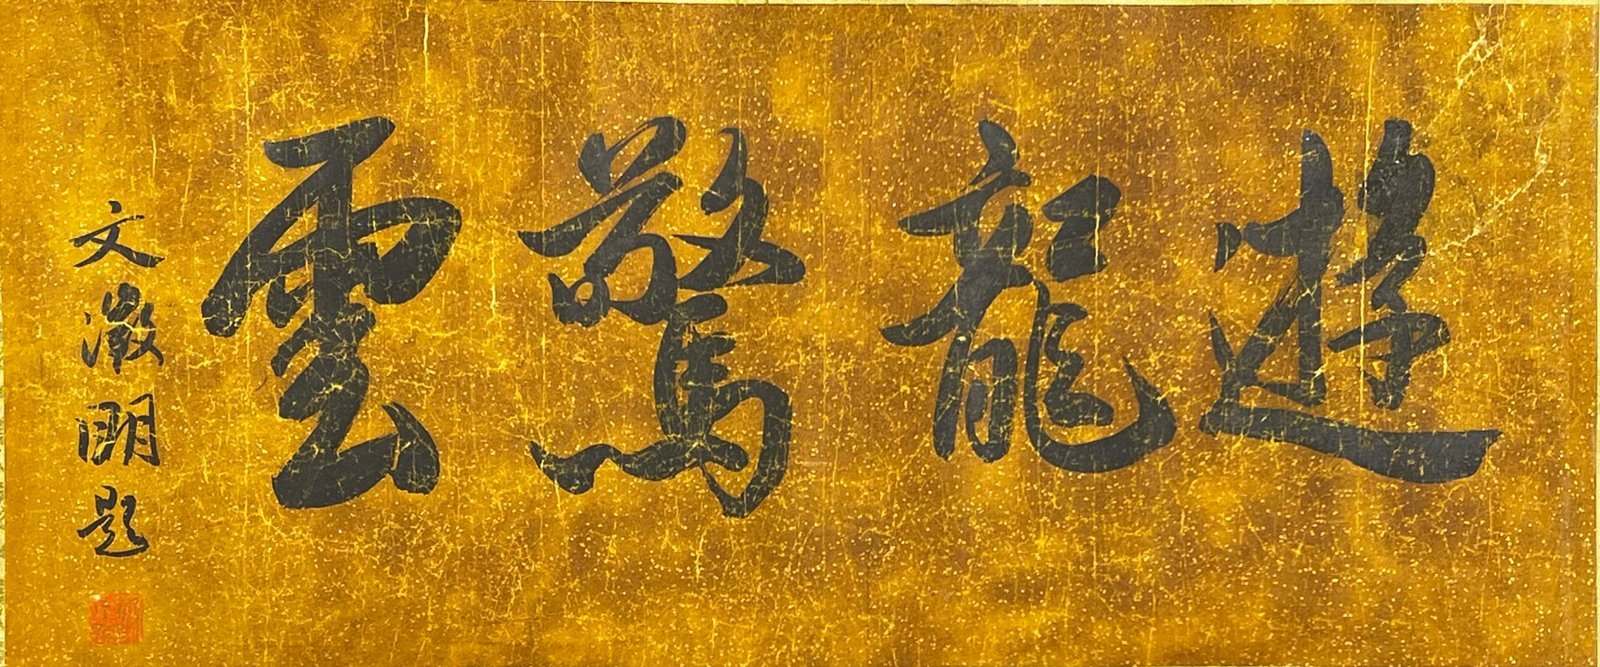 遊龍驚雲
文徵明題